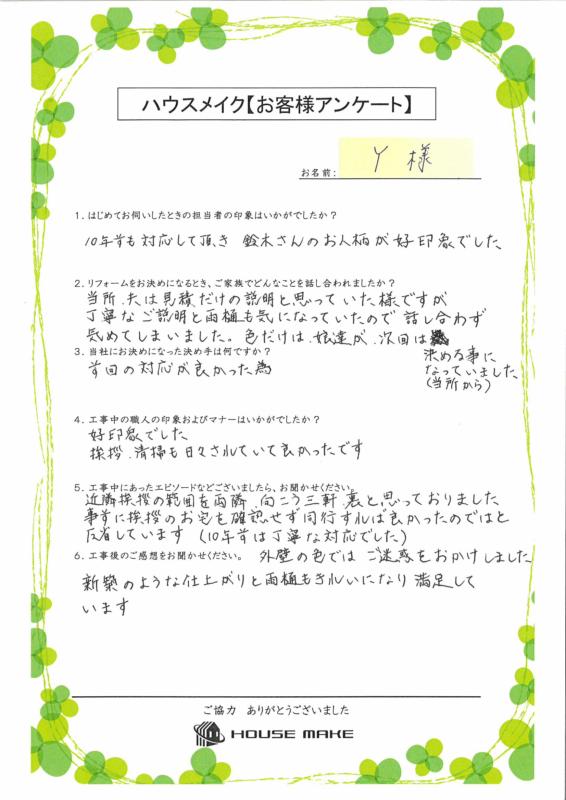 ハウスメイク【お客様アンケート】
お名前: Y 様
1. はじめてお伺いしたときの担当者の印象はいかがでしたか?
10年前も対応して頂き 鈴木さんのお人柄が好印象でした
2. リフォームをお決めになるとき、ご家族でどんなことを話し合われましたか?
当所、夫は見積だけの説明と思っていた様ですが
丁寧なご説明と雨樋も気になっていたので 話し合わず
気めてしまいました。色だけは、娘達が、次回は
決める事に
なっていました
(当所から)
3. 当社にお決めになった決め手は何ですか?
前回の対応が良かった為
4. 工事中の職人の印象およびマナーはいかがでしたか?
好印象でした
挨拶、清掃も日々されていて良かったです
5. 工事中にあったエピソードなどございましたら、お聞かせください。
近隣挨拶の範囲を両隣、向こう三軒、裏と思っておりました
事前に挨拶のお宅を確認せず同行すれば良かったのではと
反省しています (10年前は丁寧な対応でした)
6. 工事後のご感想をお聞かせください。
外壁の色では ご迷惑をおかけしました
新築のような仕上がりと雨樋もきれいになり 満足して
います
ご協力 ありがとうございました
HOUSE MAKE